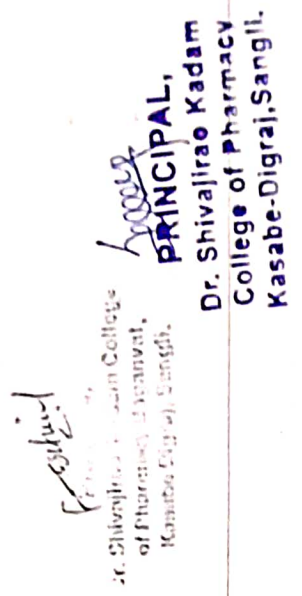 Dr. Shivajirao Kadam College
of Pharmacy,
Kasabe Digraj, Sangli.
PRINCIPAL,
Dr. Shivajirao Kadam
College of Pharmacy
Kasabe-Digraj,Sangli.